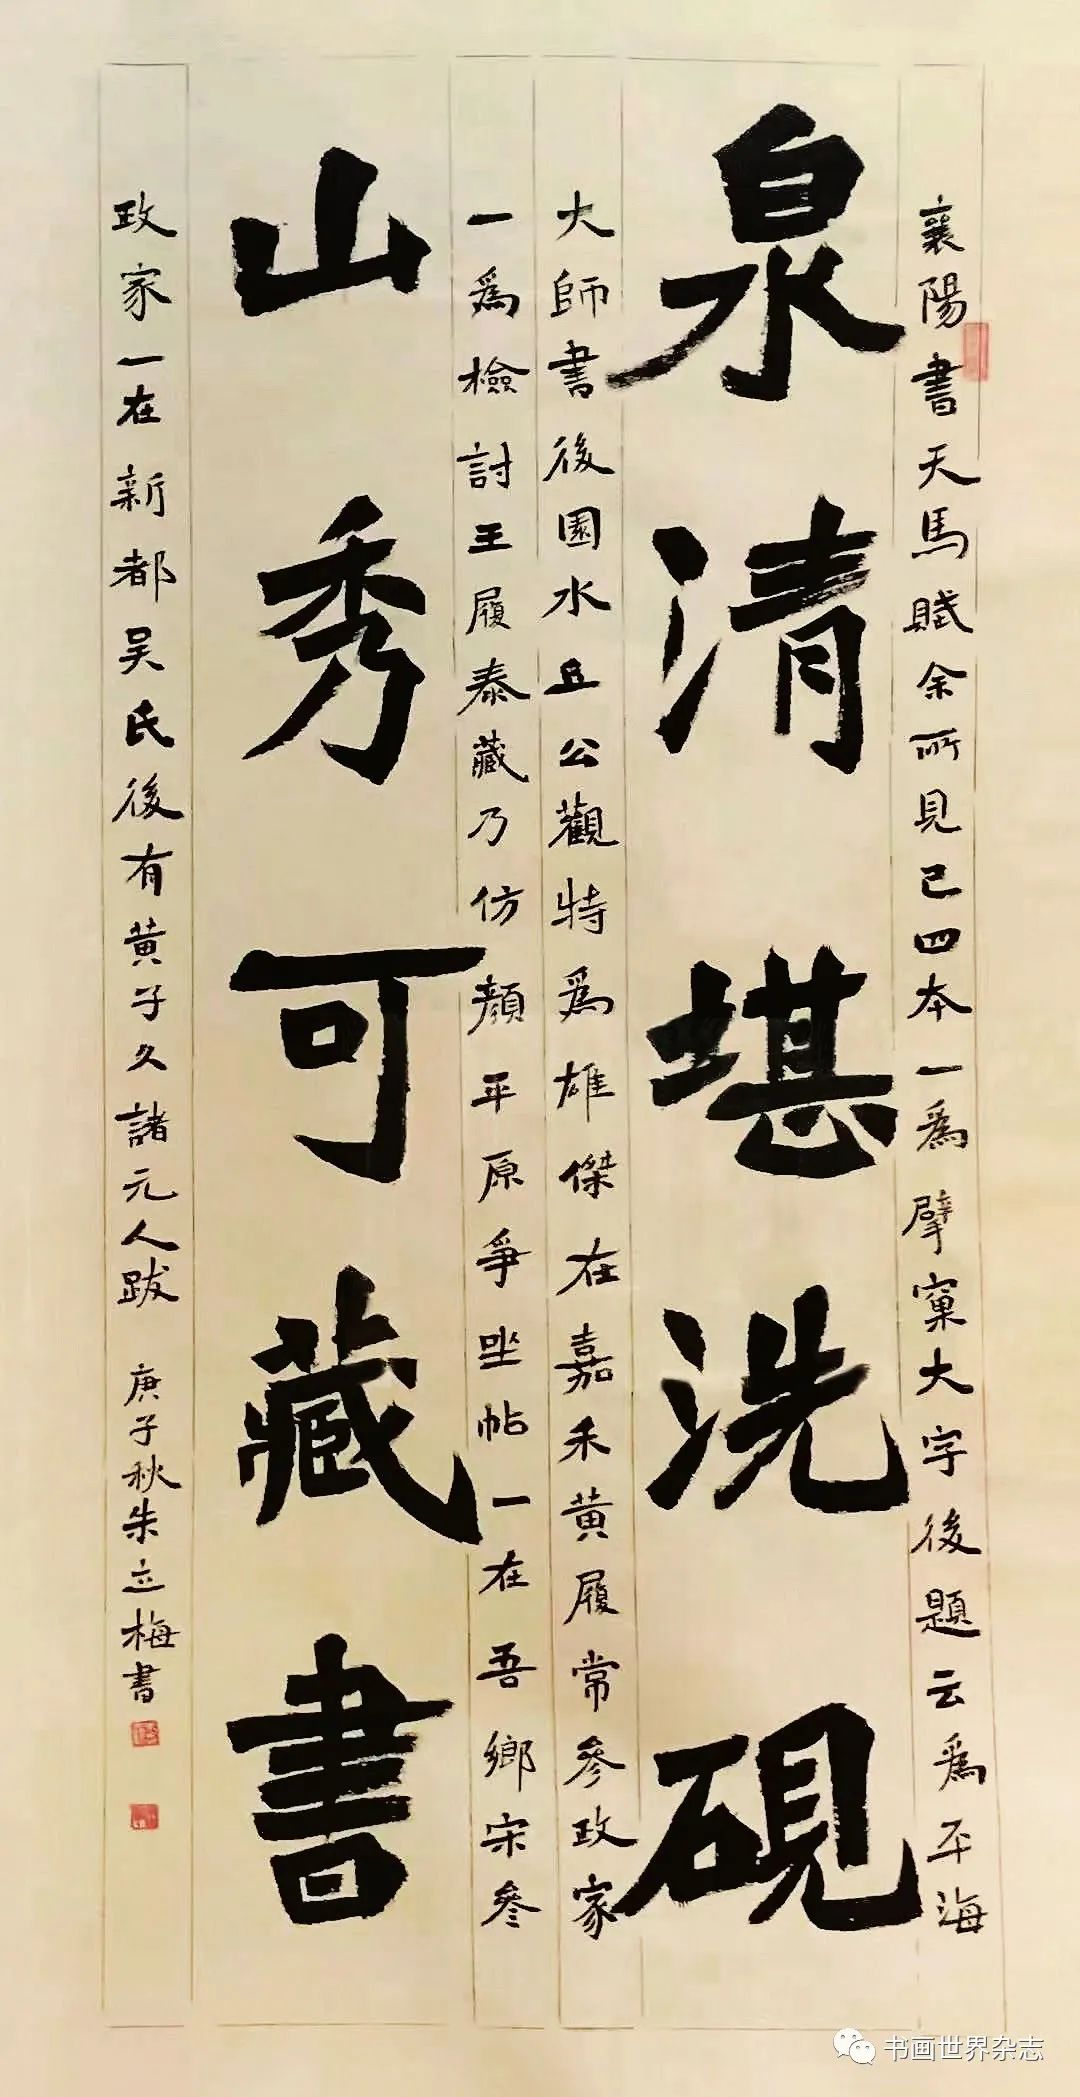 襄陽書天馬賦余所見已四本一爲擘窠大字後題云爲平海
泉清堪洗硯
大師書後園水丘公觀特爲雄傑在嘉禾黄履常參政家
一爲檢討王履泰藏乃仿顏平原爭坐帖一在吾鄉宋參
山秀可藏書
政家一在新都吴氏後有黄子久諸元人跋 庚子秋朱立梅書
书画世界杂志